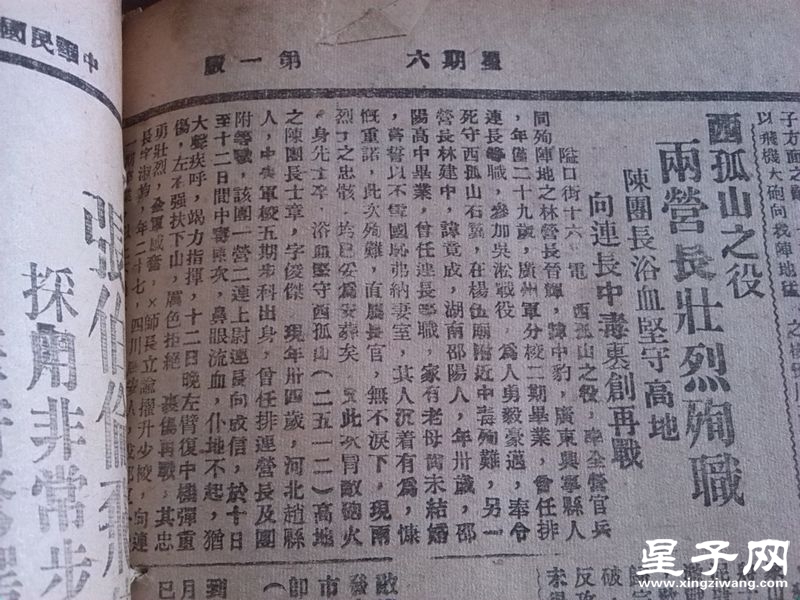 中華民國
星期六 第一版
以飛機大砲向我陣地猛
西孤山之役
兩營長壯烈殉職
陳團長浴血堅守高地
向連長中毒裹創再戰
隘口街十六日電 西孤山之役，率全營官兵
同殉陣地之林營長晉輝，諱中豹，廣東興寧縣人
，年僅二十九歲，廣州軍分校二期畢業，曾任排
連長等職，參加吳淞戰役，爲人勇毅豪邁，奉令
死守西孤山右翼，在楊伍廟附近中毒殉難，另一
營長林建中，諱竟成，湖南邵陽人，年卅歲，邵
陽高中畢業，曾任連長等職，家有老母尚未結婚
，嘗誓以不雪國恥弗納妻室，其人沉着有爲，慷
慨重諾，此次殉難，直屬長官，無不淚下，現兩
烈士之忠骸，均已妥爲安葬矣 又此次冒敵砲火
，身先士卒，浴血堅守西孤山（二五一二）高地
之陳團長士章，字俊傑，現年卅四歲，河北趙縣
人，中央軍校五期步科出身，曾任排連營長及團
附等職，該團一營二連上尉連長向成信，於十日
至十二日間中毒兩次，鼻眼流血，仆地不起，猶
大聲疾呼，竭力指揮，十二日晚左臂復中機彈重
傷，左右強扶下山，厲色拒絕，裹傷再戰，其忠
勇壯烈，全軍感奮，×師長立諭擢升少校，向連
長字淑 年二十七，四川
張伯倫
採用非常步
星子网
www.xingziwang.com